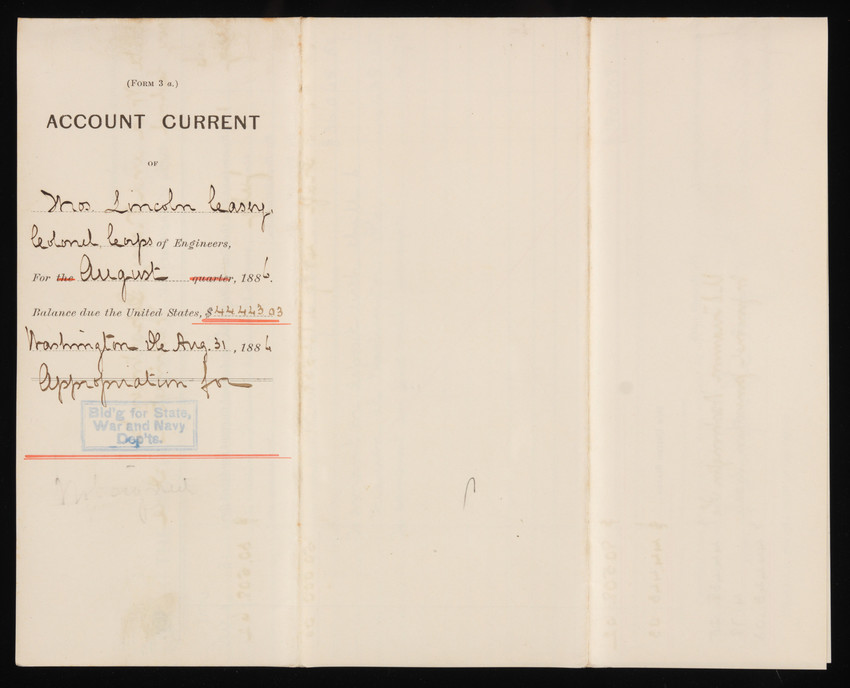 (FORM 3 a.)
ACCOUNT CURRENT
OF
Thos. Lincoln Casey,
Colonel Corps of Engineers,
For the August quarter, 1886.
Balance due the United States, $44443 03
Washington DC Aug. 31, 1886
Appropriation for
Bld'g for State,
War and Navy
Dep'ts.